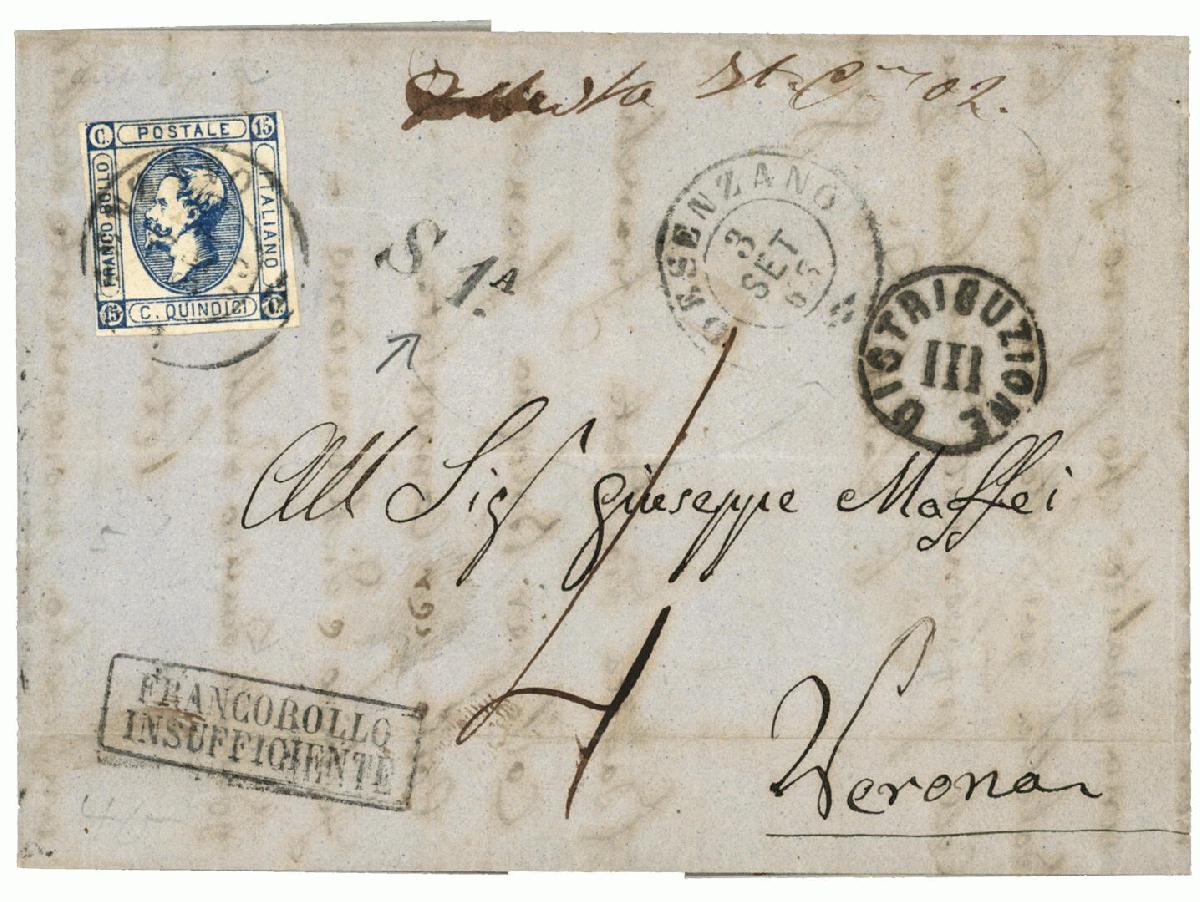 C. POSTALE 15
FRANCO BOLLO
ITALIANO
15 C. QUINDICI C.
S. 1.A
DESENZANO
3
SET
63
DISTRIBUZIONE
III
02.
All Sig Giuseppe Maffei
4
Verona
FRANCOBOLLO
INSUFFICIENTE